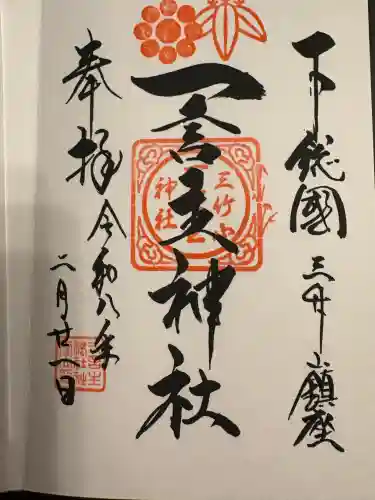 下総國 三竹山鎮座
一言主神社
奉拝 令和八年
二月廿一日
三竹山
神社